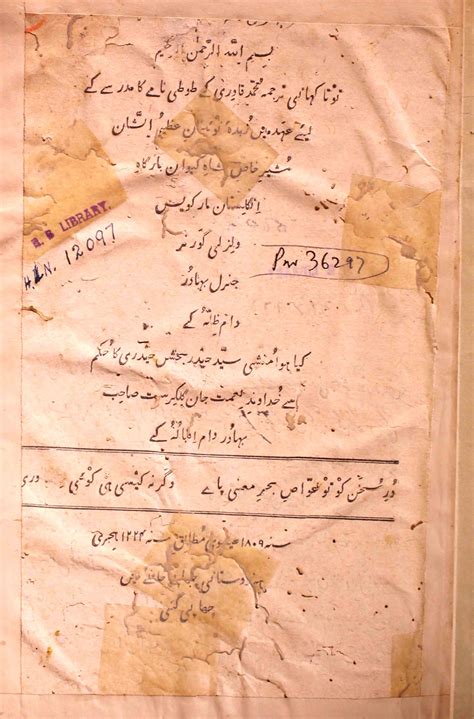 بسم اللہ الرحمٰن الرحیم
توتا کہانی ترجمہ محمّد قادری کے طوطی نامے کا مدرسے کے
لیئے عہدہ میں زُبدۂ نوئینان عظیمُ الشّان
مُشیر خاص شاہ کیوان بارگاہ
انگلستان مارکویس
ولزلی گورنر
جنرل بہادُر
دام ظلّہُ کے
کیا ہوا مُنشی سیّد حیدر بخش حیدری کا حُکم
سے خُداوندِ نعمت جان گلکرسٹ صاحب
بہادُر دام اقبالُہُ کے
دُرِ سُخن کو تو غوّاص بحرِ معنی پاے
وگرنہ کیسی ہی کوئی دری
سنہ ۱۸۰۹ عیسوی مُطابق سنہ ۱۲۲۴ ہجری
ہندوستانی چھاپے خانے میں
چھاپی گئی
H.G LIBRARY.
H.L.N. 12097
Pm 36297